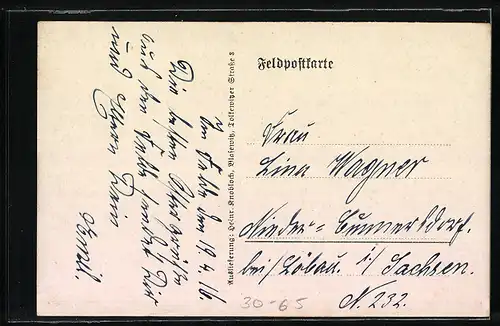 Im Felde den 19.4.16.
Die besten Ostergrüße
aus dem Felde sendet Dir
und Eltern Dein
Emil.
Auslieferung: Heinr. Knobloch, Blasewitz, Tolkewitzer Straße 8
Feldpostkarte
Frau
Lina Wagner
Nieder=Cunnersdorf.
bei/Löbau. i/Sachsen.
N. 232.
30-65